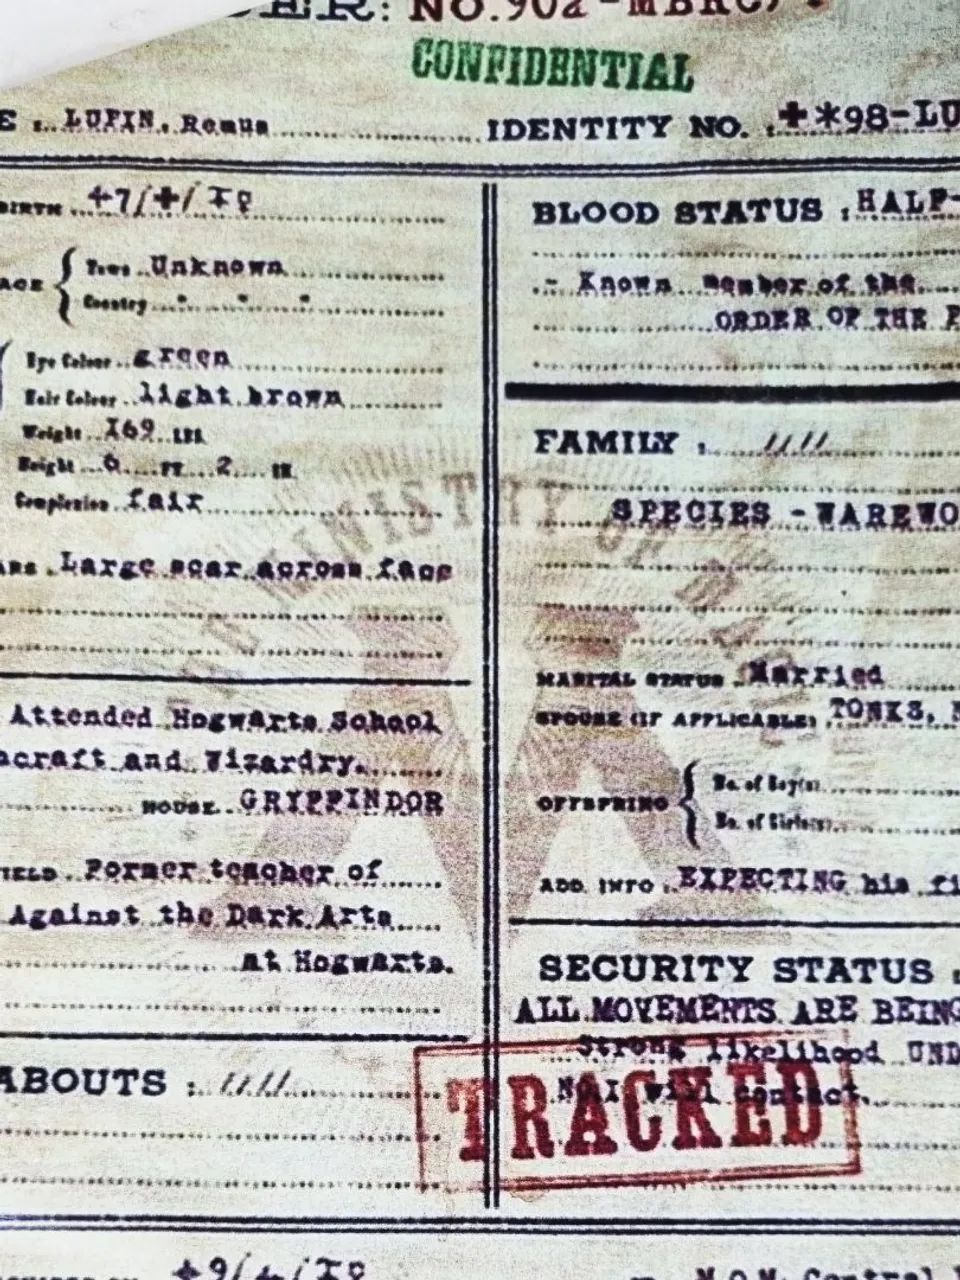 NO.902-MBRC
CONFIDENTIAL
E : LUPIN, Remus
IDENTITY NO. : +*98-LU
BIRTH
Town Unknown
Country " " "
Eye Colour green
Hair Colour light brown
Weight 169 LBS
Height 6 FT 2 IN
Complexion fair
Large scar across face
Attended Hogwarts School
hcraft and Wizardry.
HOUSE GRYFFINDOR
IELD Former teacher of
Against the Dark Arts
at Hogwarts.
ABOUTS : ////
BLOOD STATUS : HALF-
- Known member of the
ORDER OF THE P
FAMILY : ////
SPECIES - WAREWO
MARITAL STATUS Married
SPOUSE (IF APPLICABLE) TONKS, N
OFFSPRING
No. of Boy(s)
No. of Girl(s)
ADD. INFO. EXPECTING his fi
SECURITY STATUS :
ALL MOVEMENTS ARE BEING
Strong likelihood UND
NO.1 will contact.
TRACKED
MINISTRY OF
M.O.M. Control